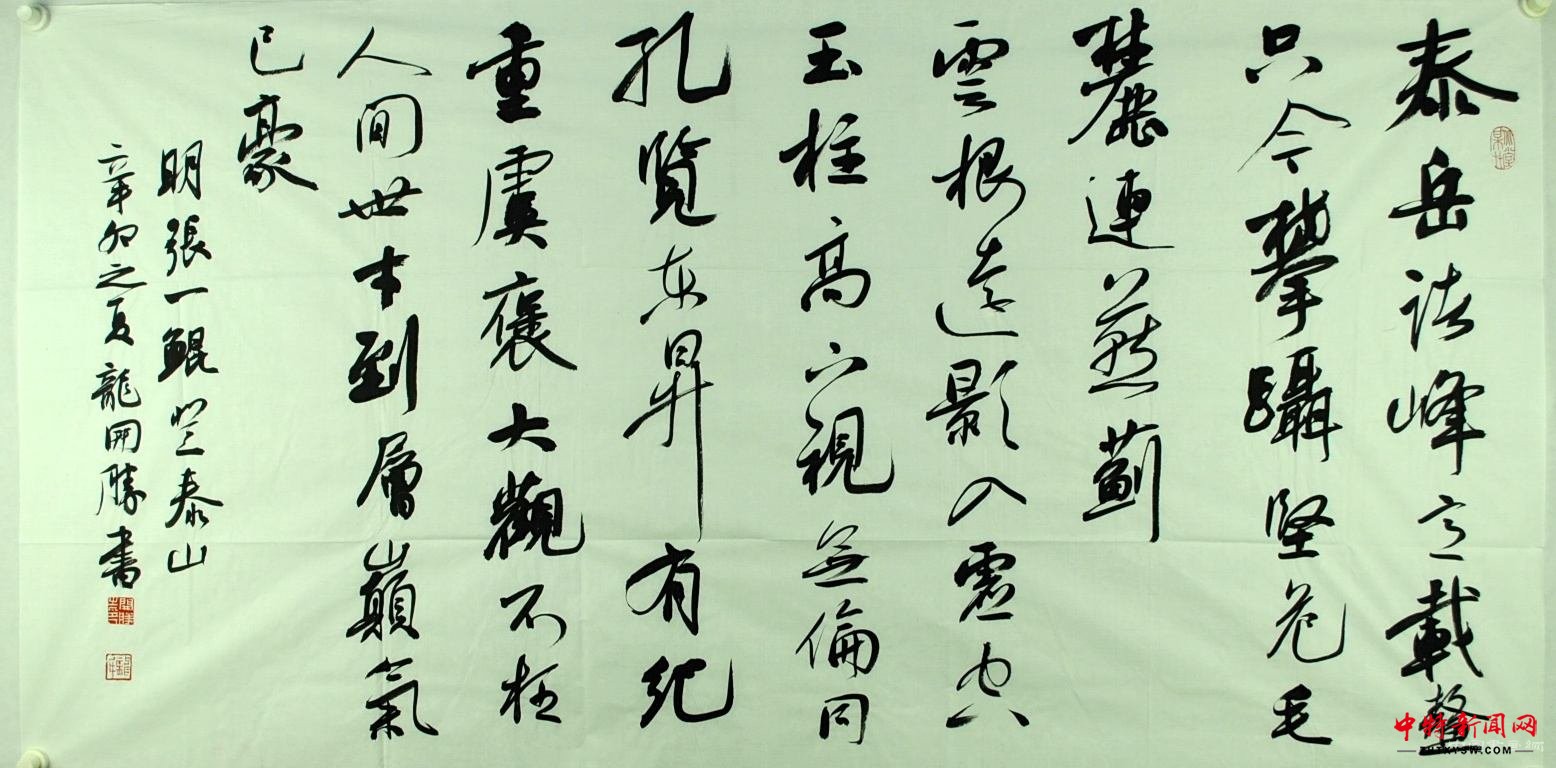 泰岳諸峰載
只今攀躡堅危毛
麓連燕薊
雲根遠影入虛空
玉柱高下視無倫同
孔覽東昇有紀
重虞褒大觀不枉
人間世才到層巔氣
已豪
明張一鯤登泰山
辛卯之夏龍開勝書
中特新闻网